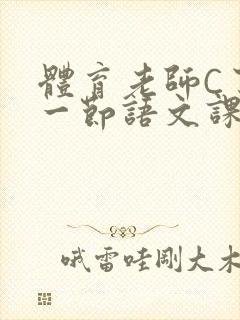 體育老師C
一節語文課
哦雷哇剛大木